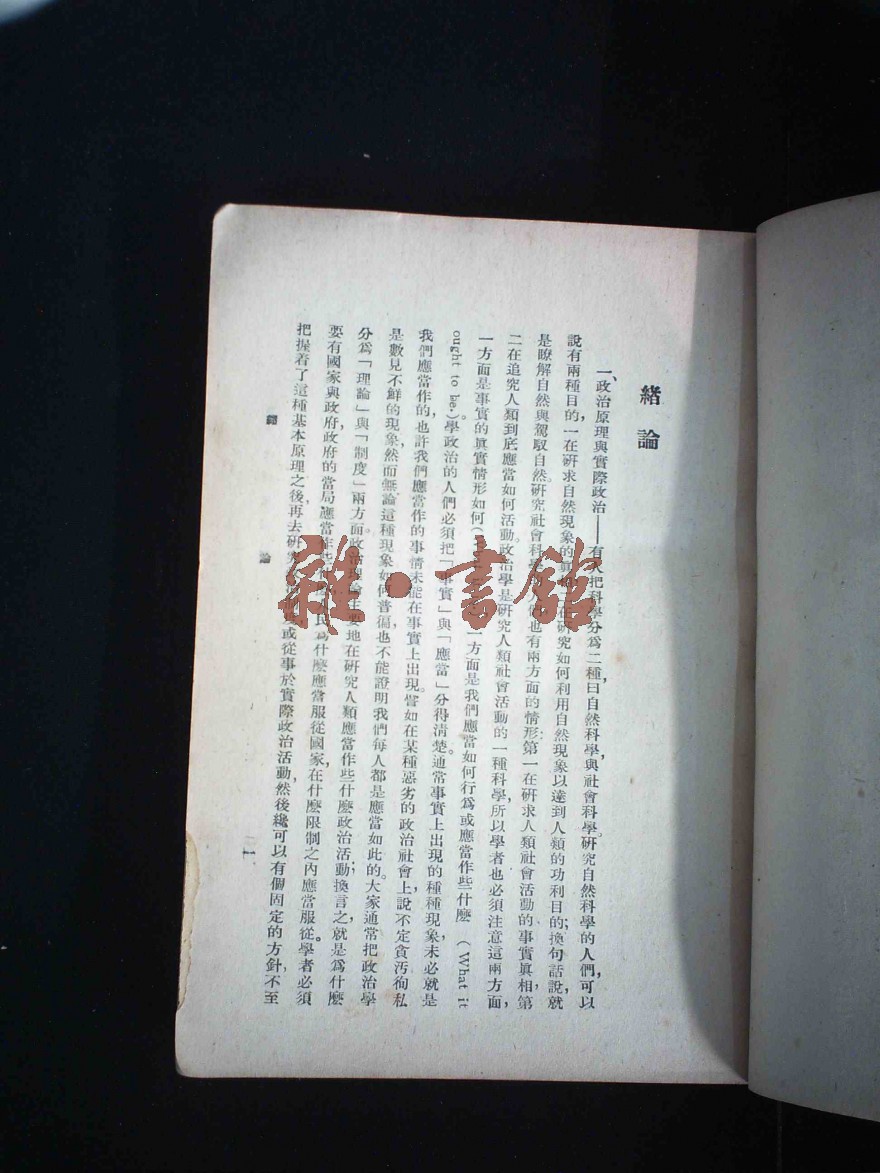 緒論
一、政治原理與實際政治——有人把科學分爲二種，曰自然科學與社會科學。研究自然科學的人們，可以
說有兩種目的，一在研求自然現象的眞相，在研究如何利用自然現象以達到人類的功利目的；換句話說，就
是瞭解自然與駕馭自然。研究社會科學的人們也有兩方面的情形：第一在研求人類社會活動的事實眞相，第
二在追究人類到底應當如何活動。政治學是研究人類社會活動的一種科學，所以學者也必須注意這兩方面，
一方面是事實的眞實情形如何（一方面是我們應當如何行爲或應當作些什麽（What it
ought to be.）。學政治的人們必須把「事實」與「應當」分得清楚。通常事實上出現的種種現象，未必就是
我們應當作的，也許我們應當作的事情未能在事實上出現。譬如在某種惡劣的政治社會上，說不定貪汚徇私
是數見不鮮的現象，然而無論這種現象如何普徧，也不能證明我們每人都是應當如此的。大家通常把政治學
分爲「理論」與「制度」兩方面。政治理論主要地在研究人類應當作些什麽政治活動；換言之，就是爲什麽
要有國家與政府，政府的當局應當作些什麽，民爲什麽應當服從國家，在什麽限制之內應當服從。學者必須
把握着了這種基本原理之後，再去研究或從事於實際政治活動，然後纔可以有個固定的方針，不至
緒論
一
雜·書館